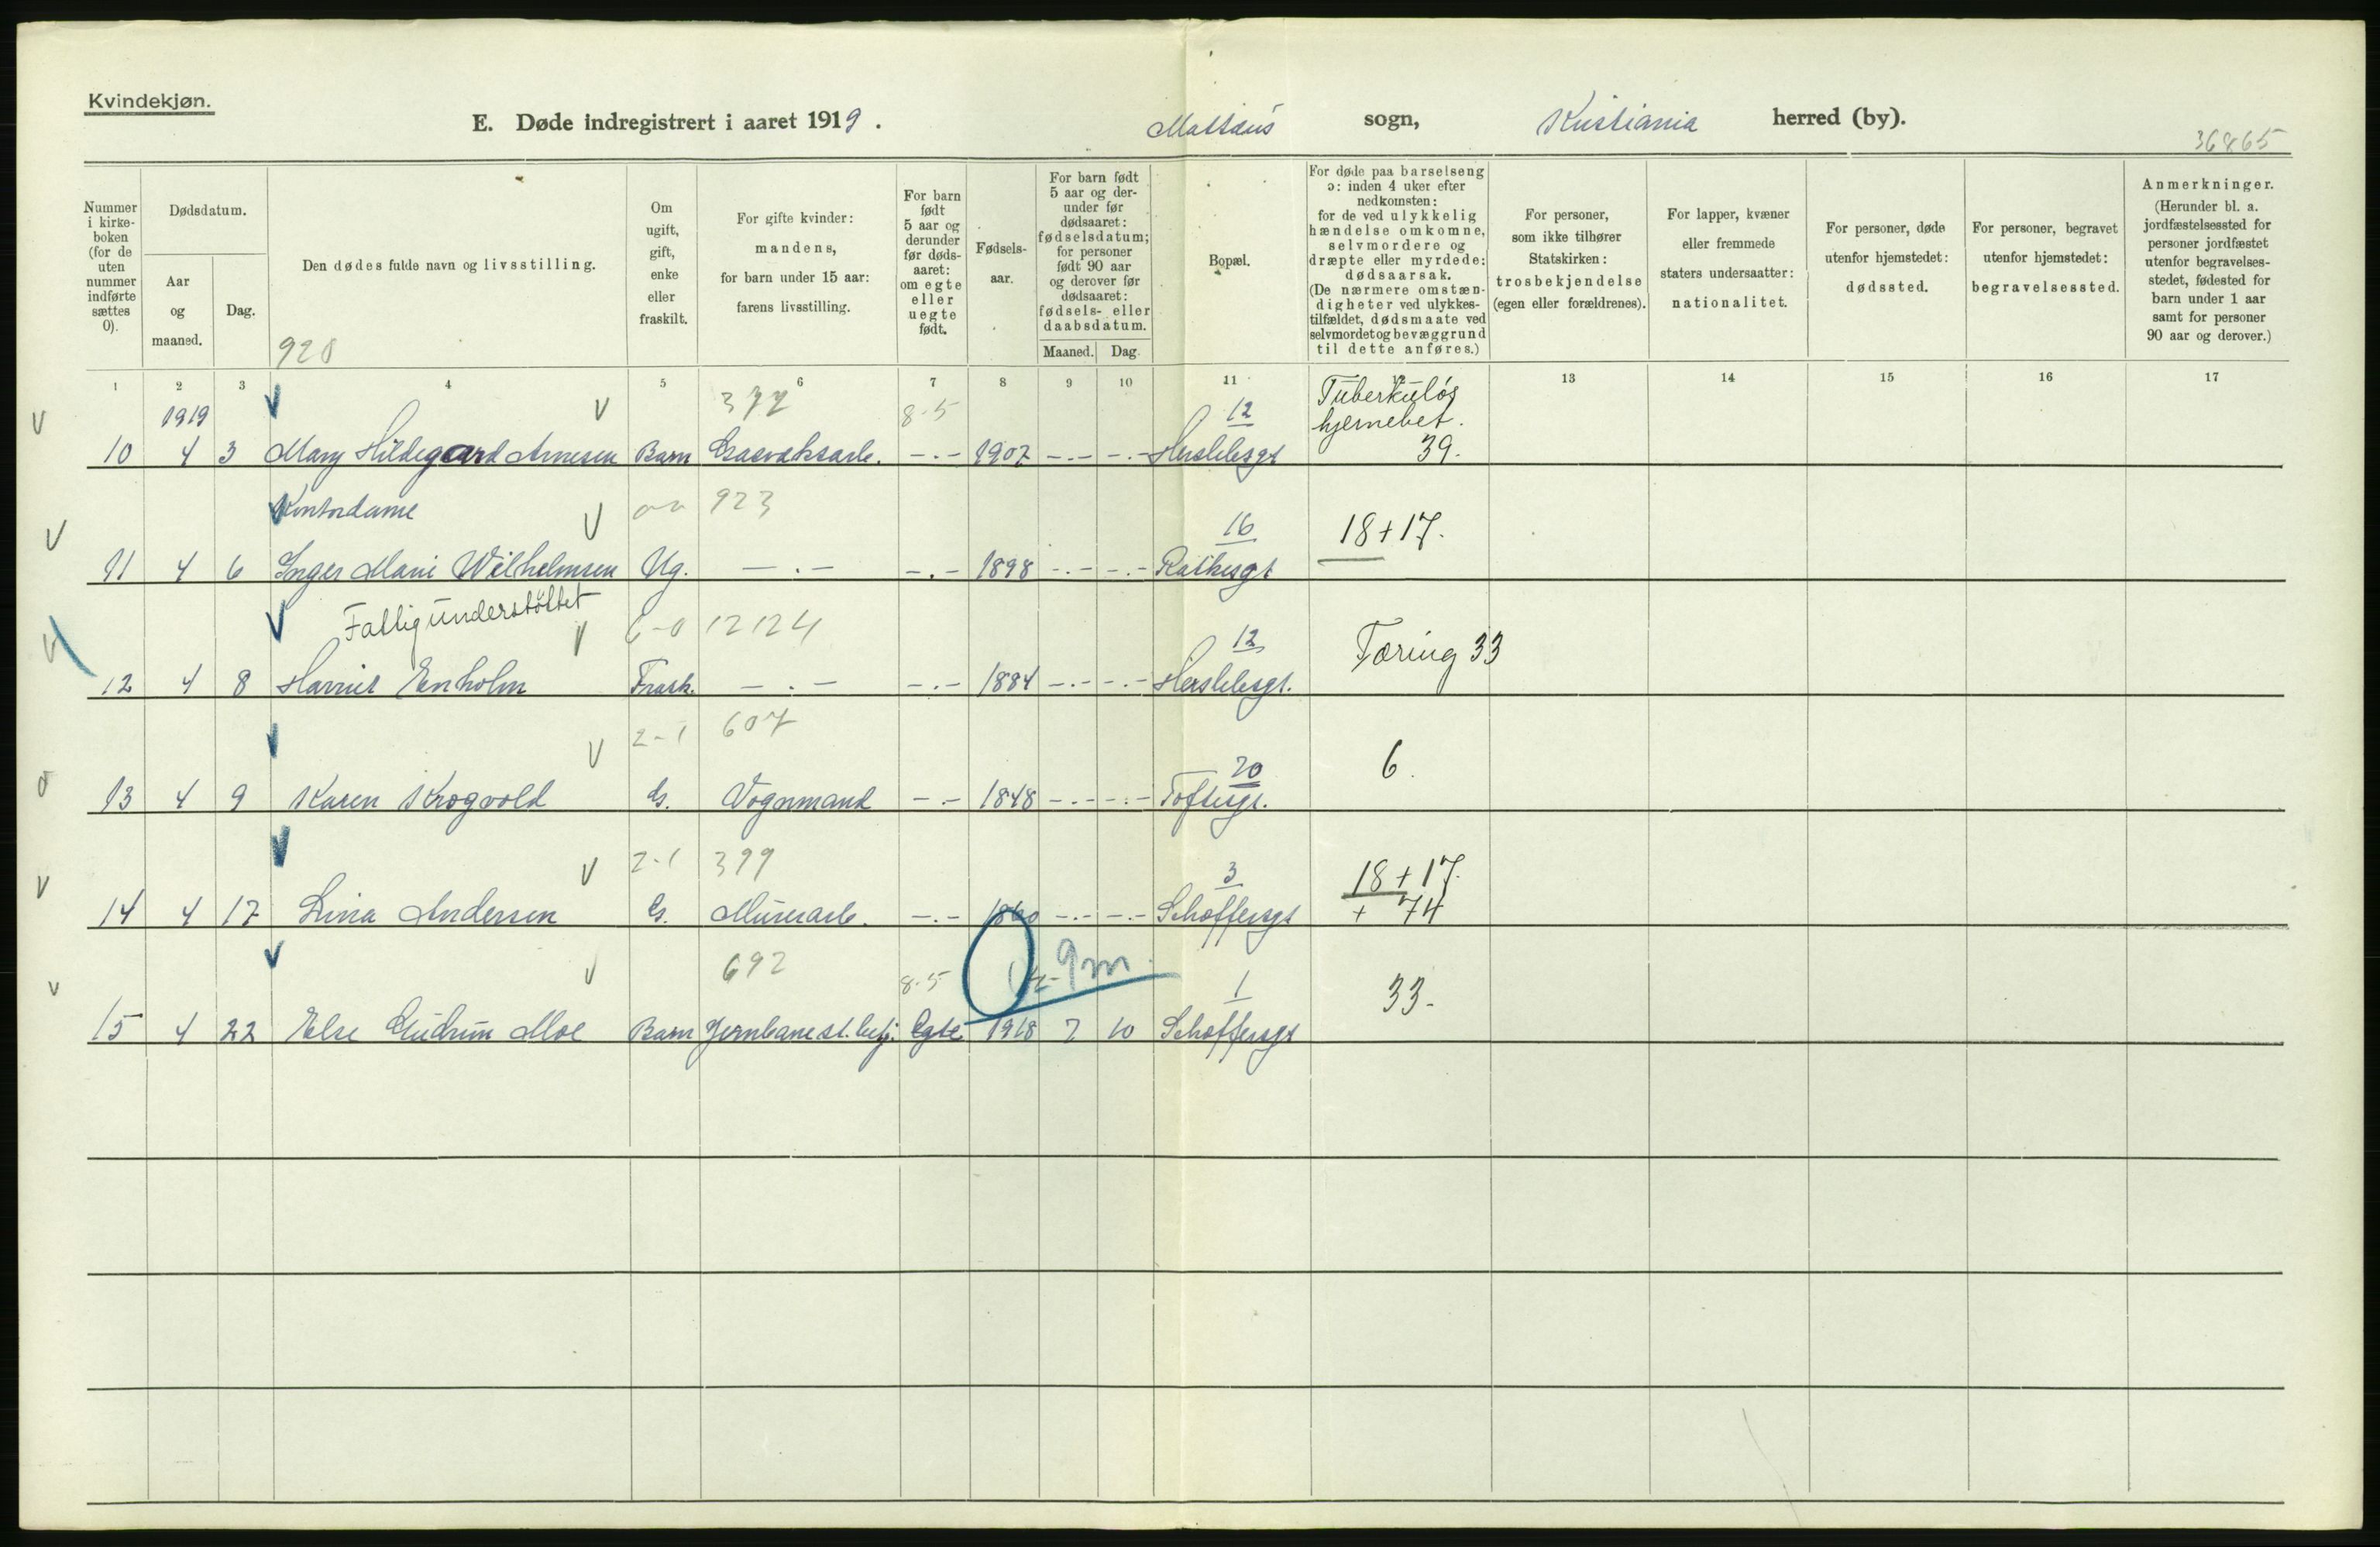 Kvindekjøn.
E. Døde indregistrert i aaret 1919. Mattæus sogn, Kristiania herred (by).
36865
Nummer i kirkeboken (for de uten nummer indførte sættes 0).
Dødsdatum.
Aar og maaned.
Dag.
Den dødes fulde navn og livsstilling.
920
Om ugift, gift, enke eller fraskilt.
For gifte kvinder: mandens, for barn under 15 aar: farens livsstilling.
For barn født 5 aar og derunder før dødsaaret: om egte eller uegte født.
Fødselsaar.
For barn født 5 aar og derunder før dødsaaret: fødselsdatum; for personer født 90 aar og derover før dødsaaret: fødsels- eller daabsdatum.
Maaned. Dag.
Bopæl.
For døde paa barselseng ɔ: inden 4 uker efter nedkomsten: for de ved ulykkelig hændelse omkomne, selvmordere og dræpte eller myrdede: dødsaarsak. (De nærmere omstændigheter ved ulykkestilfældet, dødsmaate ved selvmordet og bevæggrund til dette anføres.)
For personer, som ikke tilhører Statskirken: trosbekjendelse (egen eller forældrenes).
For lapper, kvæner eller fremmede staters undersaatter: nationalitet.
For personer, døde utenfor hjemstedet: dødssted.
For personer, begravet utenfor hjemstedet: begravelsessted.
Anmerkninger. (Herunder bl. a. jordfæstelsessted for personer jordfæstet utenfor begravelsesstedet, fødested for barn under 1 aar samt for personer 90 aar og derover.)
1 2 3 4 5 6 7 8 9 10 11 13 14 15 16 17
1919 377 8-5 12 Tuberkuløs hjernebet.
10 4 3 Mary Hildegaard Arnesen Barn Gasverksarb. -.- 1907 -.- -.- Herslebsgt 39.
Kontordame 923 16 18+17.
11 4 6 Inger Marie Wilhelmsen Ug. -.- -.- 1898 -.- -.- Rathesgt
Fattigunderstøttet 6-0 12124 12 Tæring 33
12 4 8 Harriet Enholm Frask. -.- -.- 1884 -.- -.- Herslebsgt.
2-1 607 20 6.
13 4 9 Karen Krogvold G. Vognmand -.- 1848 -.- -.- Toftesgt.
2-1 399 3 18+17.
14 4 17 Lina Andersen G. Murerarb. -.- 1860 -.- -.- Schøffersgt + 74
692 8-5 9m. 1 33.
15 4 22 Else Gudrun Moe Barn Jernbanest.betj. Egte 1918 7 10 Schøffersgt